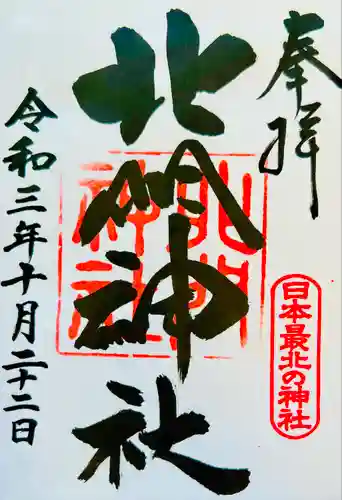 奉拝
北門神社
北門神社
日本最北の神社
令和三年十月二十二日